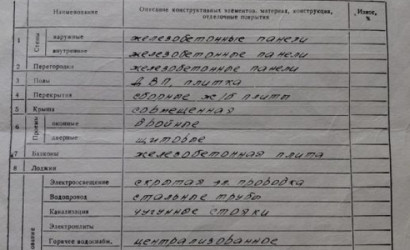 Наименование Описание конструктивных элементов, материал, конструкция, отделочные покрытия Износ, %
1 Стены наружные железобетонные панели
внутренние железобетонние панели
2 Перегородки железобетонние панели
3 Полы ДВП, плитка
4 Перекрытия сборние ж/б плиты
5 Крыша совмещенная
6 Проемы оконные двойние
дверные щитовые
7 Балконы железобетонная плита
8 Лоджии
Электроосвещение скрытая эл. проводка
Водопровод стальные трубы
Канализация чугунные стояки
Электроплиты
Горячее водоснабж. централизованное